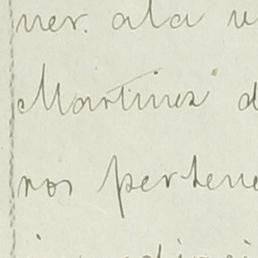 ner. ala
Martinez d
ros pertene